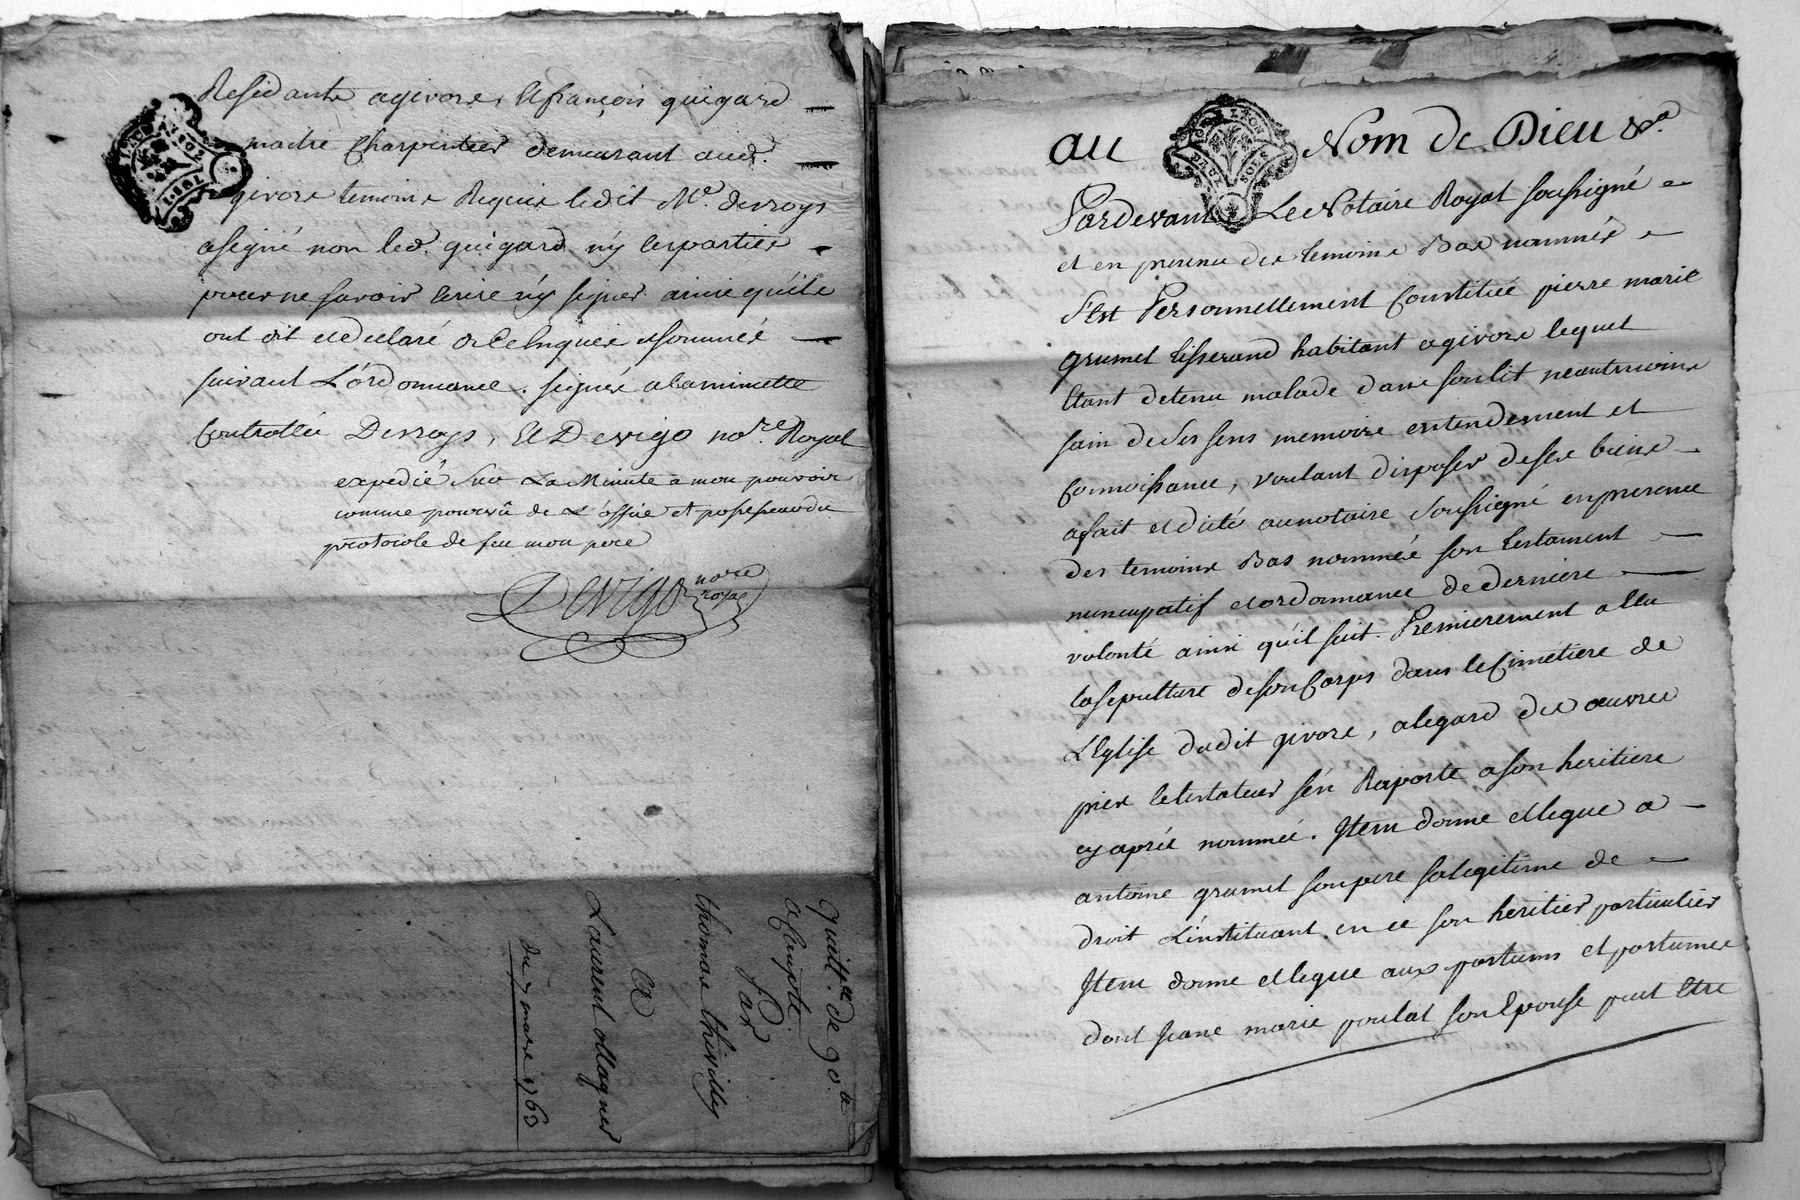 Residante a givors, et françois guigard
maitre charpentier demeurant aud.
givors temoins Requis ledit Mr. derroys
a signé non led. guigard ny les parties
pour ne savoir ecrire ny signer ainsi quils
ont dit et declaré de ce Enquis et sommés
suivant L'ordonnance. signée a la minutte
Controllée Derroys, Et Devigo nore. Royal
expedié sur La Minute a mon pouvoir
comme pourvû de L'office et possesseur du
protocole de feu mon pere
Devigo nore royal
quittce. de 90.#
a compte.
Par
thomas thivilly
a
Laurent ollagnier
du 7 mars 1763
au Nom de Dieu &a.
GEN. LYON
DEUX SOLS
Pardevant Le Notaire Royal soussigné
et en presence des temoins Bas nommés
s'est Personnellement Constitué pierre marie
grumel tisserand habitant a givors lequel
Etant detenu malade dans son lit neantmoins
sain de ses sens memoire entendement et
Connoissance, voulant disposer de ses biens
a fait et dicté au notaire soussigné en presence
des temoins Bas nommés son testament
nuncupatif et ordonnance de derniere
volonté ainsi qu'il suit. Premierement a Elu
la sepulture de son Corps dans le Cimetiere de
L'Eglise dudit givors, a l'egard des œuvres
pies le testateur s'en Raporte a son heritiere
cy après nommée. Item donne et legue a
antoine grumel son pere sa legitime de
droit L'instituant en ce son heritier particulier
Item donne et legue aux postums et postumes
dont Jeane marie poulat son Epouse peut être